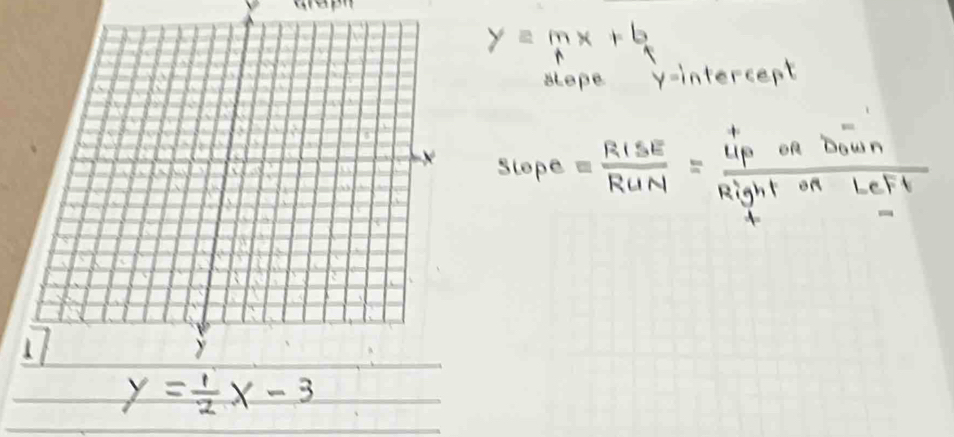 Graph
y
y = mx + b
slope y-intercept
x
+ -
slope = RISE/RUN = Up OR Down/Right OR Left
+ -
y
1
y = 1/2 x - 3